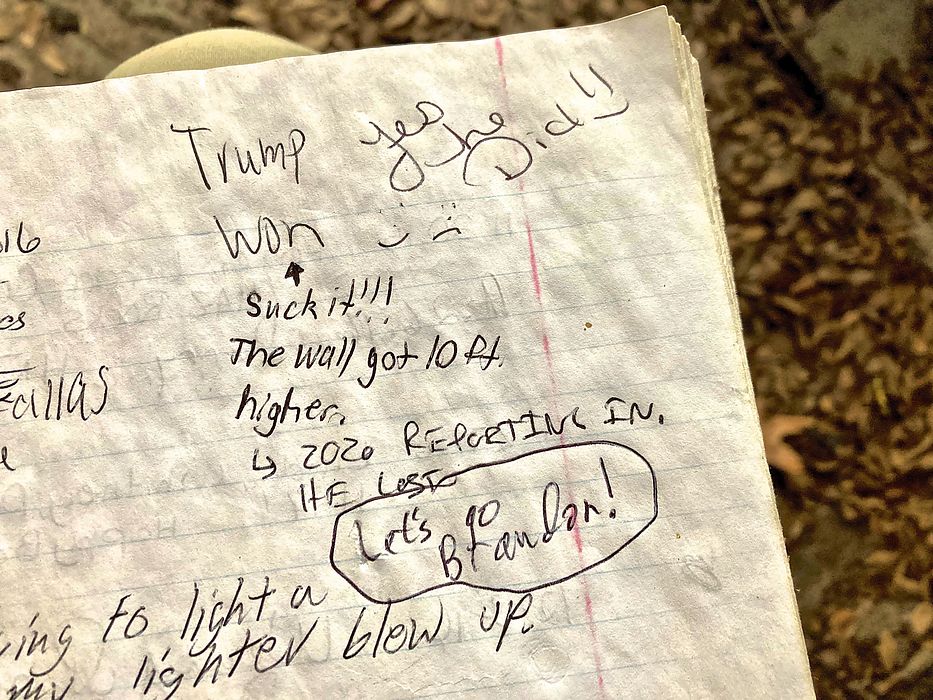 Trump yes he Did!!
16 won :) :(
Suck it!!!
The wall got 10 ft.
higher.
↳ 2020 REPORTING IN.
HE LOST
Let's go
Brandon!
ing to light a
my lighter blew up.